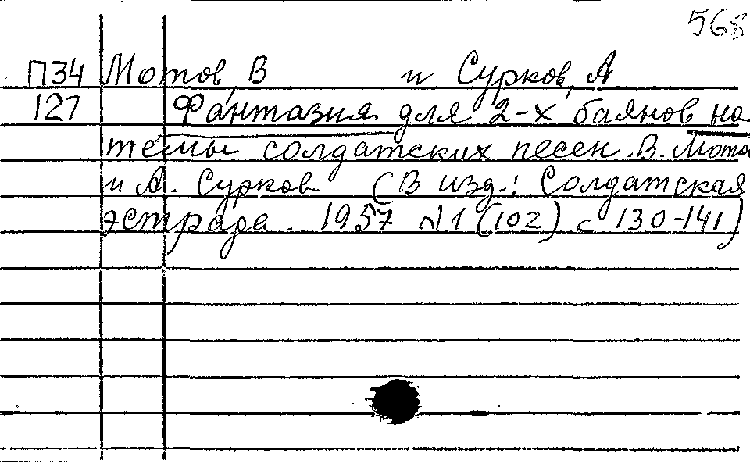 568
П34 Мотов, В и Сурков, А
127 Фантазия для 2-х баянов на
темы солдатских песен. В. Мото
и А. Сурков (В изд.: Солдатская
эстрада. 1957 №1 (102) с 130-141)